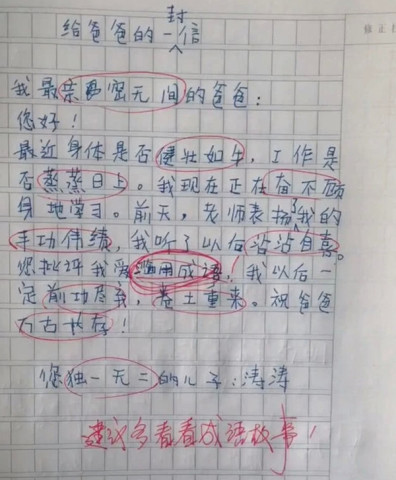 给爸爸的一封信
修正
我最亲密无间的爸爸:
您好!
最近身体是否健壮如牛,工作是
否蒸蒸日上。我现在正在奋不顾
身地学习。前天,老师表扬了我的
丰功伟绩,我听了以后沾沾自喜。
您批评我爱滥用成语!我以后一
定前功尽弃,卷土重来。祝爸爸
万古长存!
您独一无二的儿子:涛涛
建议多看看成语故事!